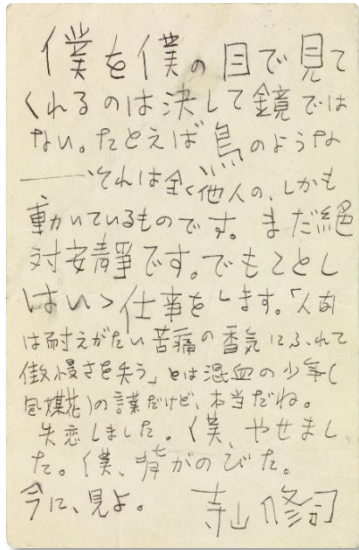 僕を僕の目で見て
くれるのは決して鏡では
ない。たとえば鳥のような
――それは全く他人の、しかも
動いているものです。まだ絶
対安静です。でもことし
はいゝ仕事をします。「人間
は耐えがたい苦痛の香気にふれて
傲慢さを失う」とは混血の少年(
風媒花)の言葉だけど、本当だね。
失恋しました。僕、やせまし
た。僕、背がのびた。
今に、見よ。 寺山修司